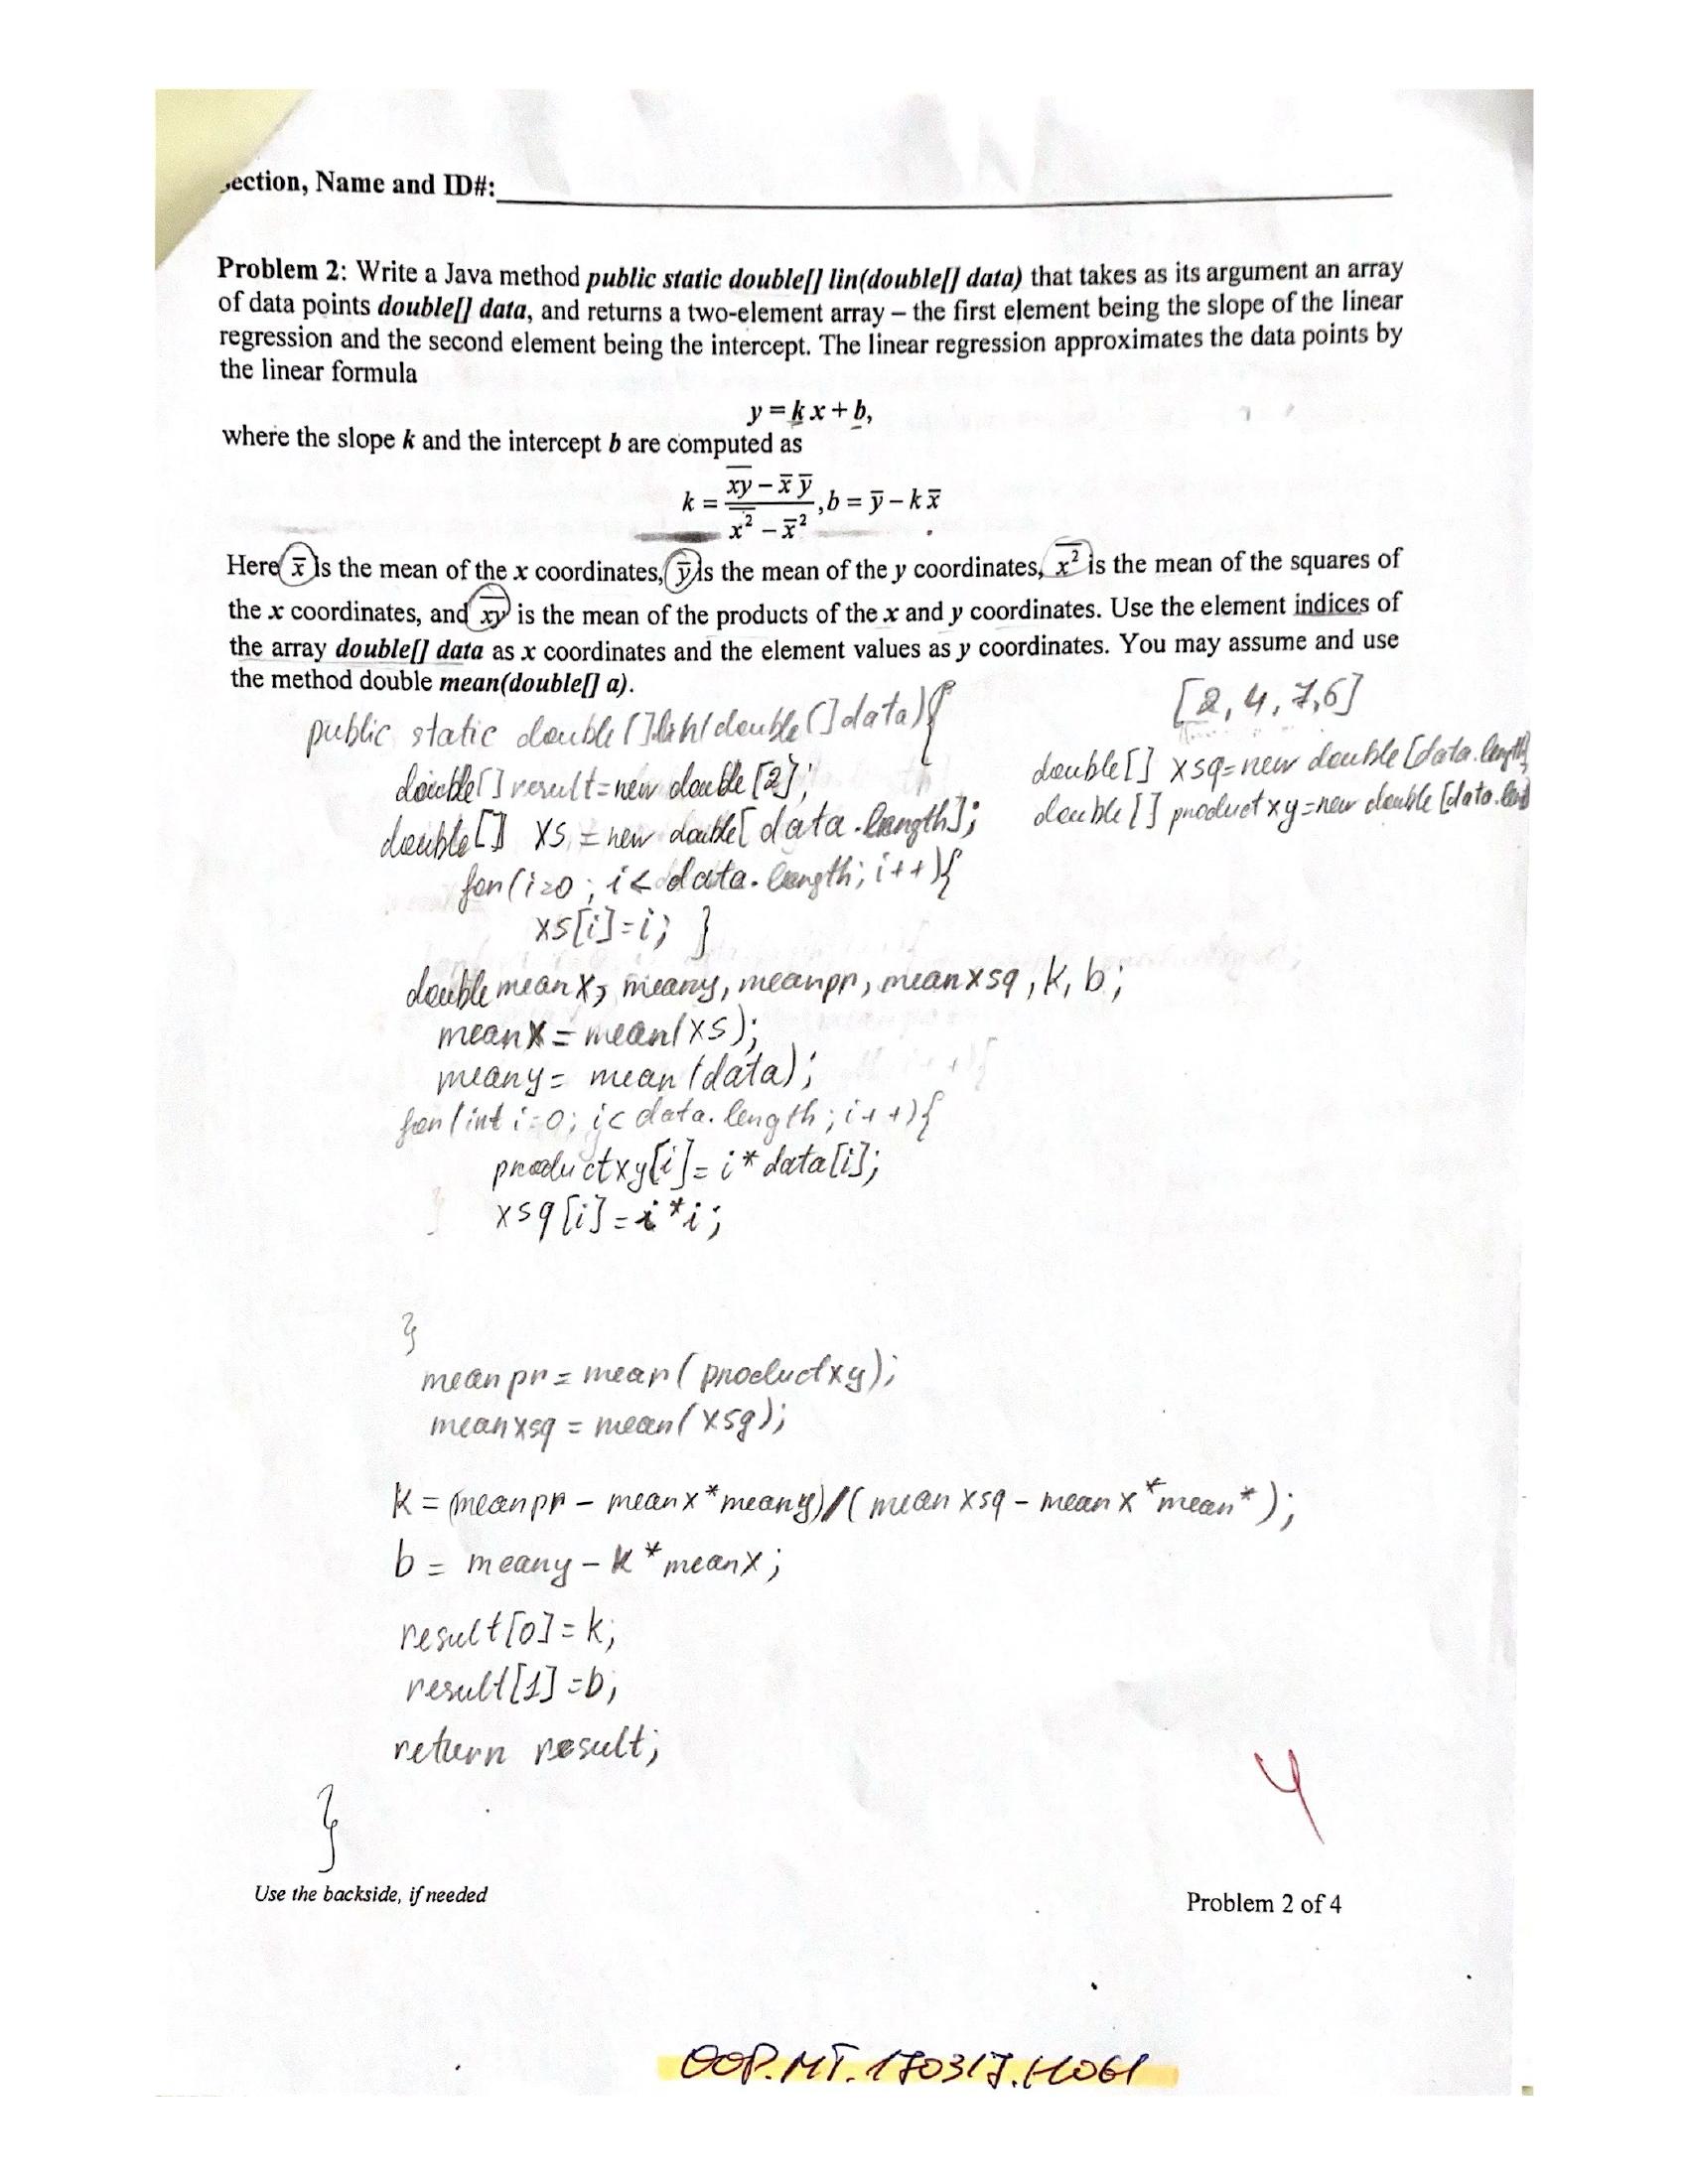 ection, Name and ID#:
Problem 2: Write a Java method public static double[] lin(double[] data) that takes as its argument an array
of data points double[] data, and returns a two-element array – the first element being the slope of the linear
regression and the second element being the intercept. The linear regression approximates the data points by
the linear formula
y = k x + b,
where the slope k and the intercept b are computed as
k = (x̅y̅ – x̅ y̅) / (x̅²̅ – x̅²), b = y̅ – k x̅
Here x̅ is the mean of the x coordinates, y̅ is the mean of the y coordinates, x̅²̅ is the mean of the squares of
the x coordinates, and x̅y̅ is the mean of the products of the x and y coordinates. Use the element indices of
the array double[] data as x coordinates and the element values as y coordinates. You may assume and use
the method double mean(double[] a).
[2, 4, 7, 6]
public static double []lin(double []data){
double[] result=new double [2];
double[] xs = new double[data.length];
double[] xsq=new double [data.length]
double[] productxy=new double [data.len
for(i=0; i< data.length; i++){
xs[i]=i; }
double meanx, meany, meanpr, meanxsq, k, b;
meanx = mean(xs);
meany = mean(data);
for(int i=0; i< data.length; i++){
productxy[i]= i* data[i];
xsq[i]=i*i;
}
meanpr = mean(productxy);
meanxsq = mean(xsq);
k = (meanpr – meanx*meany)/(meanxsq – meanx*mean*);
b = meany – k*meanx;
result[0]=k;
result[1]=b;
return result;
}
4
Use the backside, if needed
Problem 2 of 4
OOP.MT.170317.H061